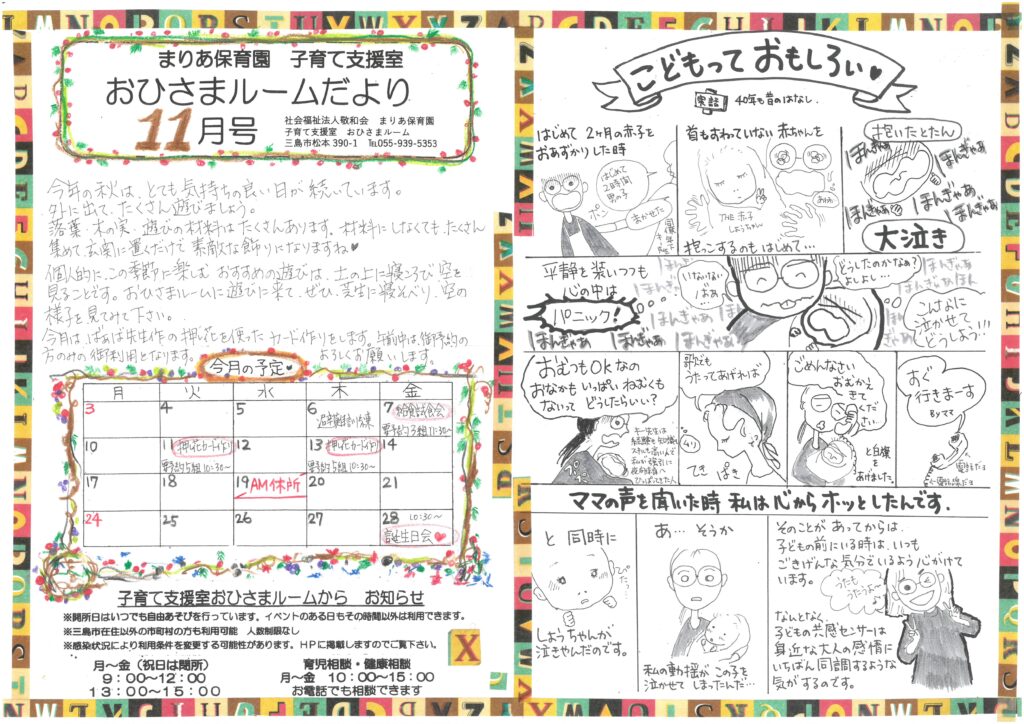 まりあ保育園 子育て支援室
おひさまルームだより
11月号
社会福祉法人敬和会 まりあ保育園
子育て支援室 おひさまルーム
三島市松本390-1 ℡055-939-5353
今年の秋は、とても気持ちの良い日が続いています。
外に出て、たくさん遊びましょう。
落葉・木の実・遊びの材料はたくさんあります。材料にしなくても、たくさん
集めて玄関に置くだけで素敵な飾りになりますね♥
個人的に、この季節に楽しむおすすめの遊びは、土の上に寝ころび空を
見ることです。おひさまルームに遊びに来て、ぜひ、芝生に寝そべり、空の
様子を見てみて下さい。
今月は、ばぁば先生作の押花を使ったカード作りをします。上前中は御予約の
方のみの御利用となります。よろしくお願いします。
今月の予定♥
月 火 水 木 金
3 4 5 6 7 給食試食会
要予約3組11:30~
10 11 押花カード作り 12 13 押花カード作り 14
要予約5組10:30~ 要予約5組10:30~
17 18 19 AM休所 20 21
24 25 26 27 28 10:30~
誕生日会♥
子育て支援室おひさまルームから お知らせ
※開所日はいつでも自由あそびを行っています。イベントのある日もその時間以外は利用できます。
※三島市在住以外の市町村の方も利用可能 人数制限なし
※感染状況により利用条件を変更する可能性があります。HPに掲載しますのでご覧下さい。
月~金(祝日は閉所)
9:00~12:00
13:00~15:00
育児相談・健康相談
月~金 10:00~15:00
お電話でも相談できます
X
こどもって おもしろい♥
実話 40年も昔のはなし.
はじめて 2ヶ月の赤子を
おあずかりした時
はじめて
2時間
男の子
ポン
まかせた
首もすわっていない赤ちゃんを
THE 赤子
しょうちゃん
抱っこするのもはじめて…
抱いたとたん
ほんぎゃあ
ほんぎゃあ
ほんぎゃあ
ほんぎゃあ
ほんぎゃあ
大泣き
平静を装いつも
心の中は
パニック!
いないない
ばぁぁ
どうしたのかなぁ?
よしよし…
ほんぎゃあ
ほんぎゃあ
こんなに
泣かせて
どうしよう…!!
おむつもOKなの
おなかもいっぱいねむくも
ないってどうしたらいい?
歌でも
うたってあげれば
てき ぱき
ごめんなさい
おむかえ
きて
くだ
さい…
と白旗
をあげました。
すぐ
行きまーす
Byママ
ママの声を聞いた時 私は心からホッとしたんです.
と 同時に
しょうちゃんが
泣きやんだのです。
あ… そうか
私の動揺が この子を
泣かせて しまったんだ…
そのことが あってからは、
子どもの前にいる時は、いつも
ごきげんな気分でいるよう心がけて
います。
うたも
うたうよー
なんとなく、
子どもの共感センサーは
身近な大人の感情に
いちばん同調するような
気がするのです。